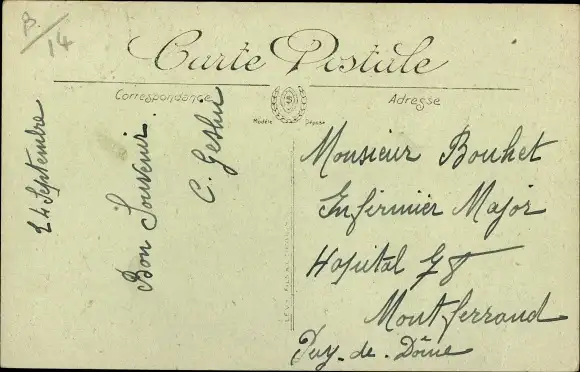 B/14
Carte Postale
Correspondance
Adresse
Modèle Déposé
24 Septembre
Bon Souvenir.
Monsieur Bouhet
Infirmier Major
Hopital 78
Montferrand
Puy-de-Dôme